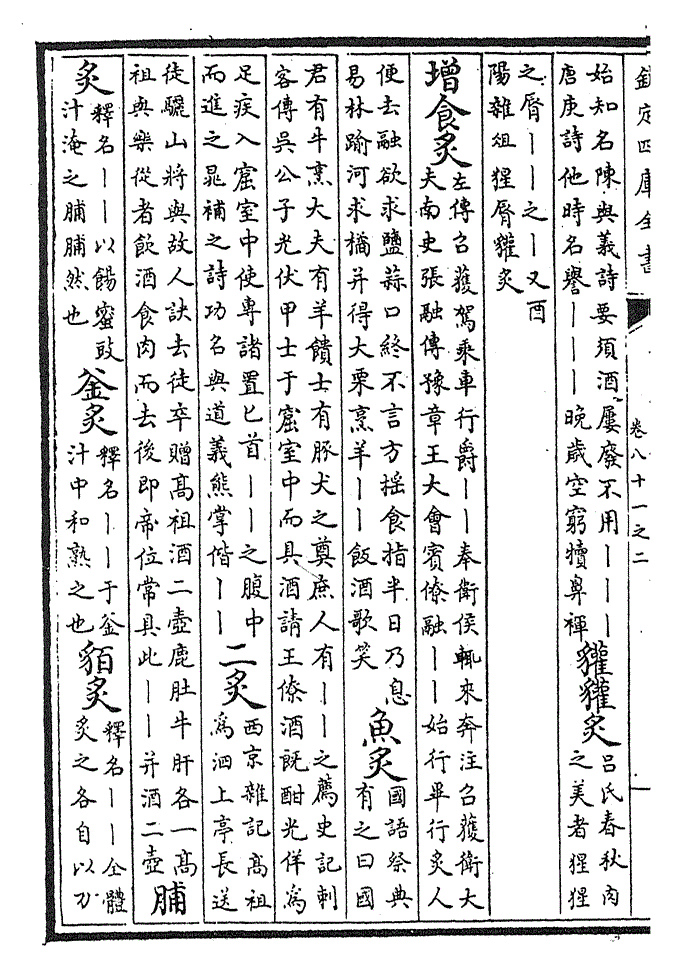 欽定四庫全書
卷八十一之二
始知名陳與義詩要須酒屢廢不用｜｜｜
唐庚詩他時名譽｜｜｜晚歲空窮犢鼻褌
貛貛炙
呂氏春秋肉
之美者猩猩
之脣｜｜之｜又酉
陽雜俎猩脣貛炙
增食炙
左傳召獲駕乘車行爵｜｜奉衛侯輒來奔注召獲衛大
夫南史張融傳豫章王大會賓僚融｜｜始行畢行炙人
便去融欲求鹽蒜口終不言方揺食指半日乃息
易林踰河求橘并得大栗烹羊｜｜飯酒歌笑
魚炙
國語祭典
有之曰國
君有牛烹大夫有羊饋士有豚犬之奠庶人有｜｜之薦史記刺
客傳吳公子光伏甲士于窟室中而具酒請王僚酒既酣光佯為
足疾入窟室中使專諸置匕首｜｜之腹中
而進之晁補之詩功名與道義熊掌偕｜｜
二炙
西京雜記髙祖
為泗上亭長送
徒驪山將與故人訣去徒卒贈髙祖酒二壺鹿肚牛肝各一髙
祖與樂從者飲酒食肉而去後即帝位常具此｜｜并酒二壺
脯
炙
釋名｜｜以餳蜜豉
汁淹之脯脯然也
釜炙
釋名｜｜于釜
汁中和熟之也
貊炙
釋名｜｜全體
炙之各自以刀